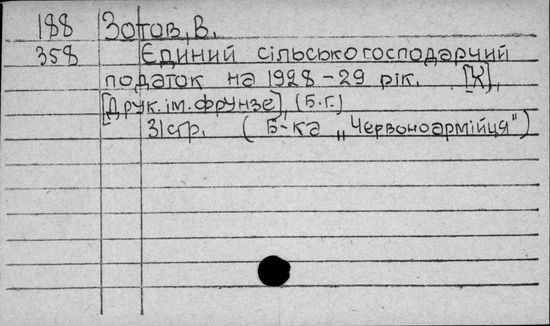 188 Зотов, В.
358 Єдиний сільськогосподарчий
податок на 1928-29 рік. [Х],
[Друк. ім. Фрунзе], (Б.г.)
31 стр. (Б-ка „Червоноармійця")